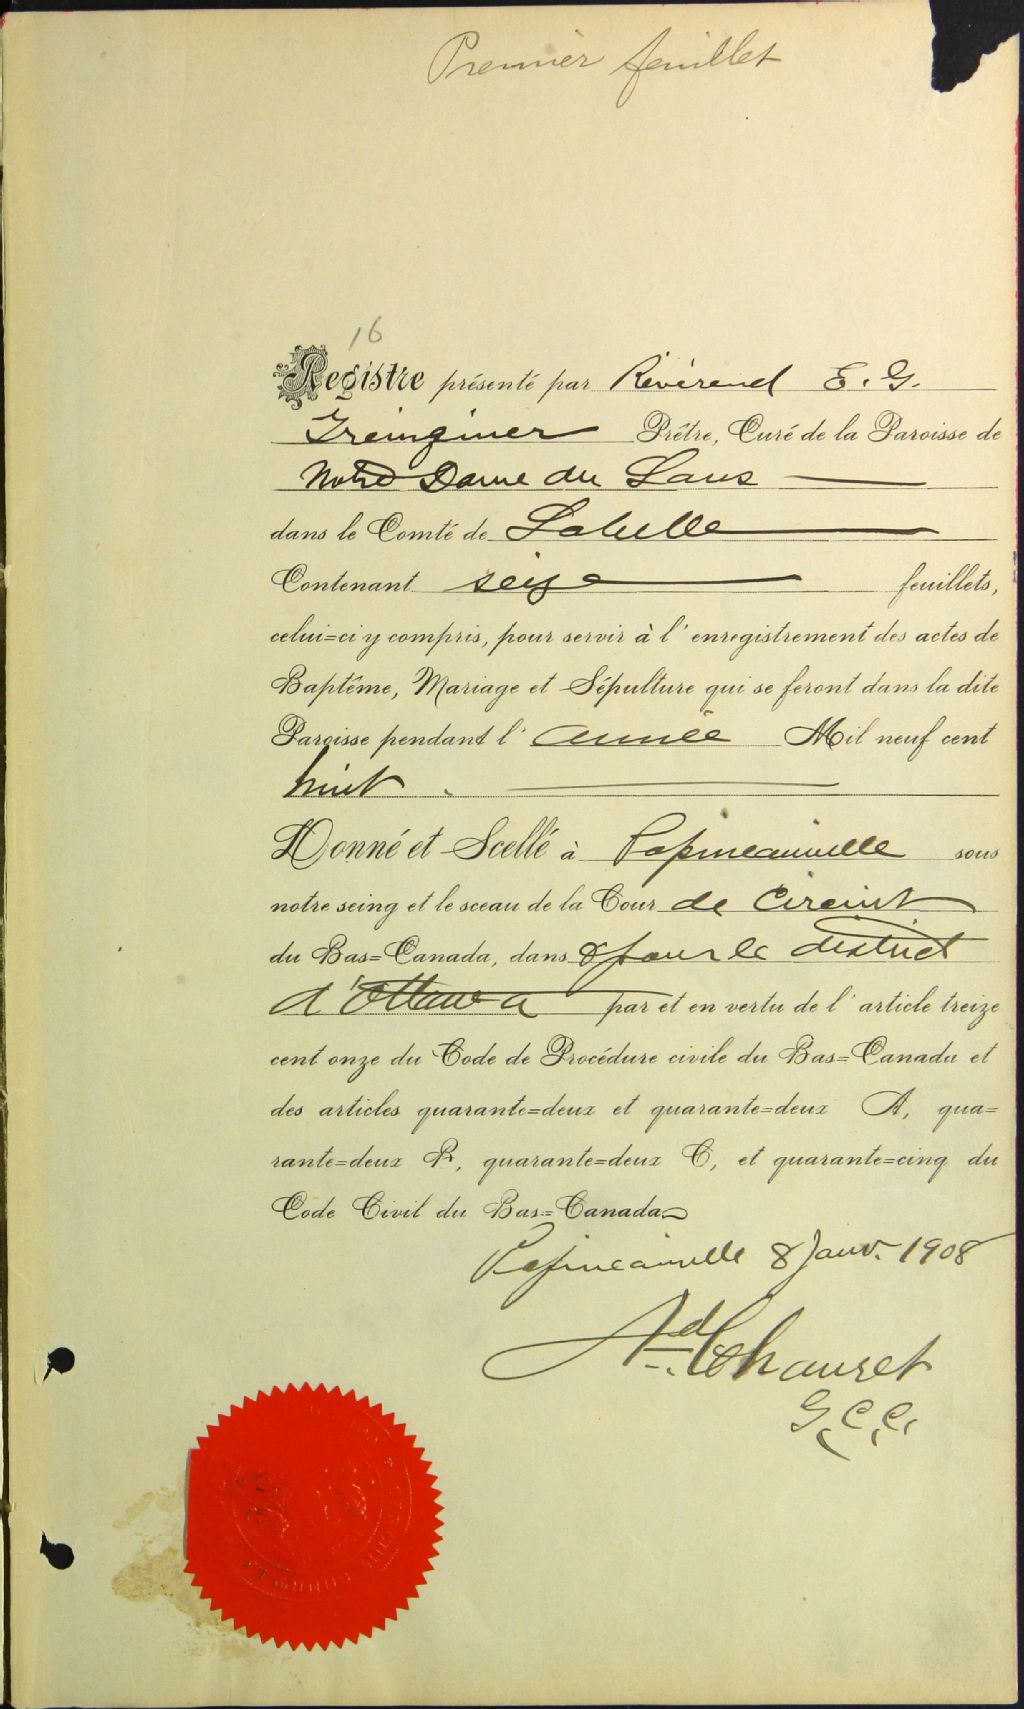 Premier feuillet
16
Registre présenté par Révérend E. G.
Prêtre, Curé de la Paroisse de
Notre Dame du Laus
dans le Comté de Labelle
Contenant seize feuillets,
celui=ci y compris, pour servir à l'enregistrement des actes de
Baptême, Mariage et Sépulture qui se feront dans la dite
Paroisse pendant l'année Mil neuf cent
huit.
Donné et Scellé à Papineauville sous
notre seing et le sceau de la Cour de Circuit
du Bas=Canada, dans & pour le district
d'Ottawa par et en vertu de l'article treize
cent onze du Code de Procédure civile du Bas=Canada et
des articles quarante=deux et quarante=deux A, qua=
rante=deux B, quarante=deux C, et quarante=cinq du
Code Civil du Bas=Canada
Papineauville 8 Janv. 1908
Ad. Chauret
G.C.C.